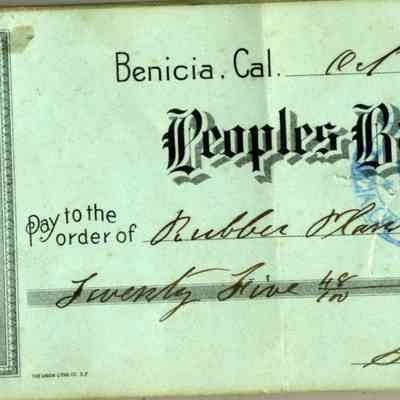 Benicia, Cal. Oct
Peoples Ba
Pay to the order of Rubber
Twenty Five 48/100
THE UNION LITHO. CO. S.F.